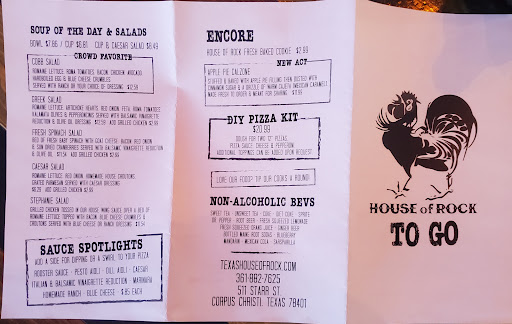 SOUP OF THE DAY & SALADS
BOWL $7.86 / CUP $6.81 CUP & CAESAR SALAD $8.49
CROWD FAVORITE
COBB SALAD
ROMAINE LETTUCE ROMA TOMATOES BACON CHICKEN AVOCADO
HARDBOILED EGG & BLUE CHEESE CRUMBLES
SERVED WITH RANCH OR YOUR CHOICE OF DRESSING $12.59
GREEK SALAD
ROMAINE LETTUCE ARTICHOKE HEARTS RED ONION FETA ROMA TOMATOES
KALAMATA OLIVES & PEPPERONCINIS SERVED WITH BALSAMIC VINAIGRETTE
REDUCTION & OLIVE OIL DRESSING ADD GRILLED CHICKEN $2.99
FRESH SPINACH SALAD
BED OF FRESH BABY SPINACH WITH GOAT CHEESE BACON RED ONION
& SUN DRIED CRANBERRIES SERVED WITH BALSAMIC VINAIGRETTE REDUCTION
& OLIVE OIL ADD GRILLED CHICKEN $2.99
CAESAR SALAD
ROMAINE LETTUCE RED ONION HOMEMADE HOUSE CROUTONS
GRATED PARMESAN SERVED WITH CAESAR DRESSING
ADD GRILLED CHICKEN $2.99
STEPHANIE SALAD
GRILLED CHICKEN TOSSED IN OUR HOUSE WING SAUCE OVER A BED OF
ROMAINE LETTUCE TOPPED WITH BACON BLUE CHEESE CRUMBLES &
CROUTONS SERVED WITH BLUE CHEESE OR RANCH DRESSING
SAUCE SPOTLIGHTS
ADD A SIDE FOR DIPPING OR A SWIRL TO YOUR PIZZA
ROOSTER SAUCE - PESTO AIOLI - DILL AIOLI - CAESAR
ITALIAN & BALSAMIC VINAIGRETTE REDUCTION - MARINARA
HOMEMADE RANCH - BLUE CHEESE - $.95 EACH
ENCORE
HOUSE OF ROCK FRESH BAKED COOKIE $2.99
NEW ACT
APPLE PIE CALZONE
STUFFED & BAKED WITH APPLE PIE FILLING THEN DUSTED WITH
CINNAMON SUGAR & A DRIZZLE OF WARM GOOEY AMERICAN CARAMEL
MADE FRESH TO ORDER & MEANT FOR SHARING
DIY PIZZA KIT
$20.99
DOUGH FOR TWO 12" PIZZAS
PIZZA SAUCE CHEESE & PEPPERONI
ADDITIONAL TOPPINGS CAN BE ADDED UPON REQUEST
LOVE OUR FOOD? TIP OUR COOKS A ROUND!
NON-ALCOHOLIC BEVS
SWEET TEA - UNSWEET TEA - COKE - DIET COKE - SPRITE
DR PEPPER - ROOT BEER - FRESH SQUEEZED LEMONADE
FRESH SQUEEZED ORANGE JUICE - GINGER BEER
BOTTLED MAINE ROOT SODAS - BLUEBERRY
MANDARIN - MEXICAN COLA - SARSPARILLA
TEXASHOUSEOFROCK.COM
361-882-7625
511 STARR ST
CORPUS CHRISTI, TEXAS 78401
HOUSE of ROCK
TO GO